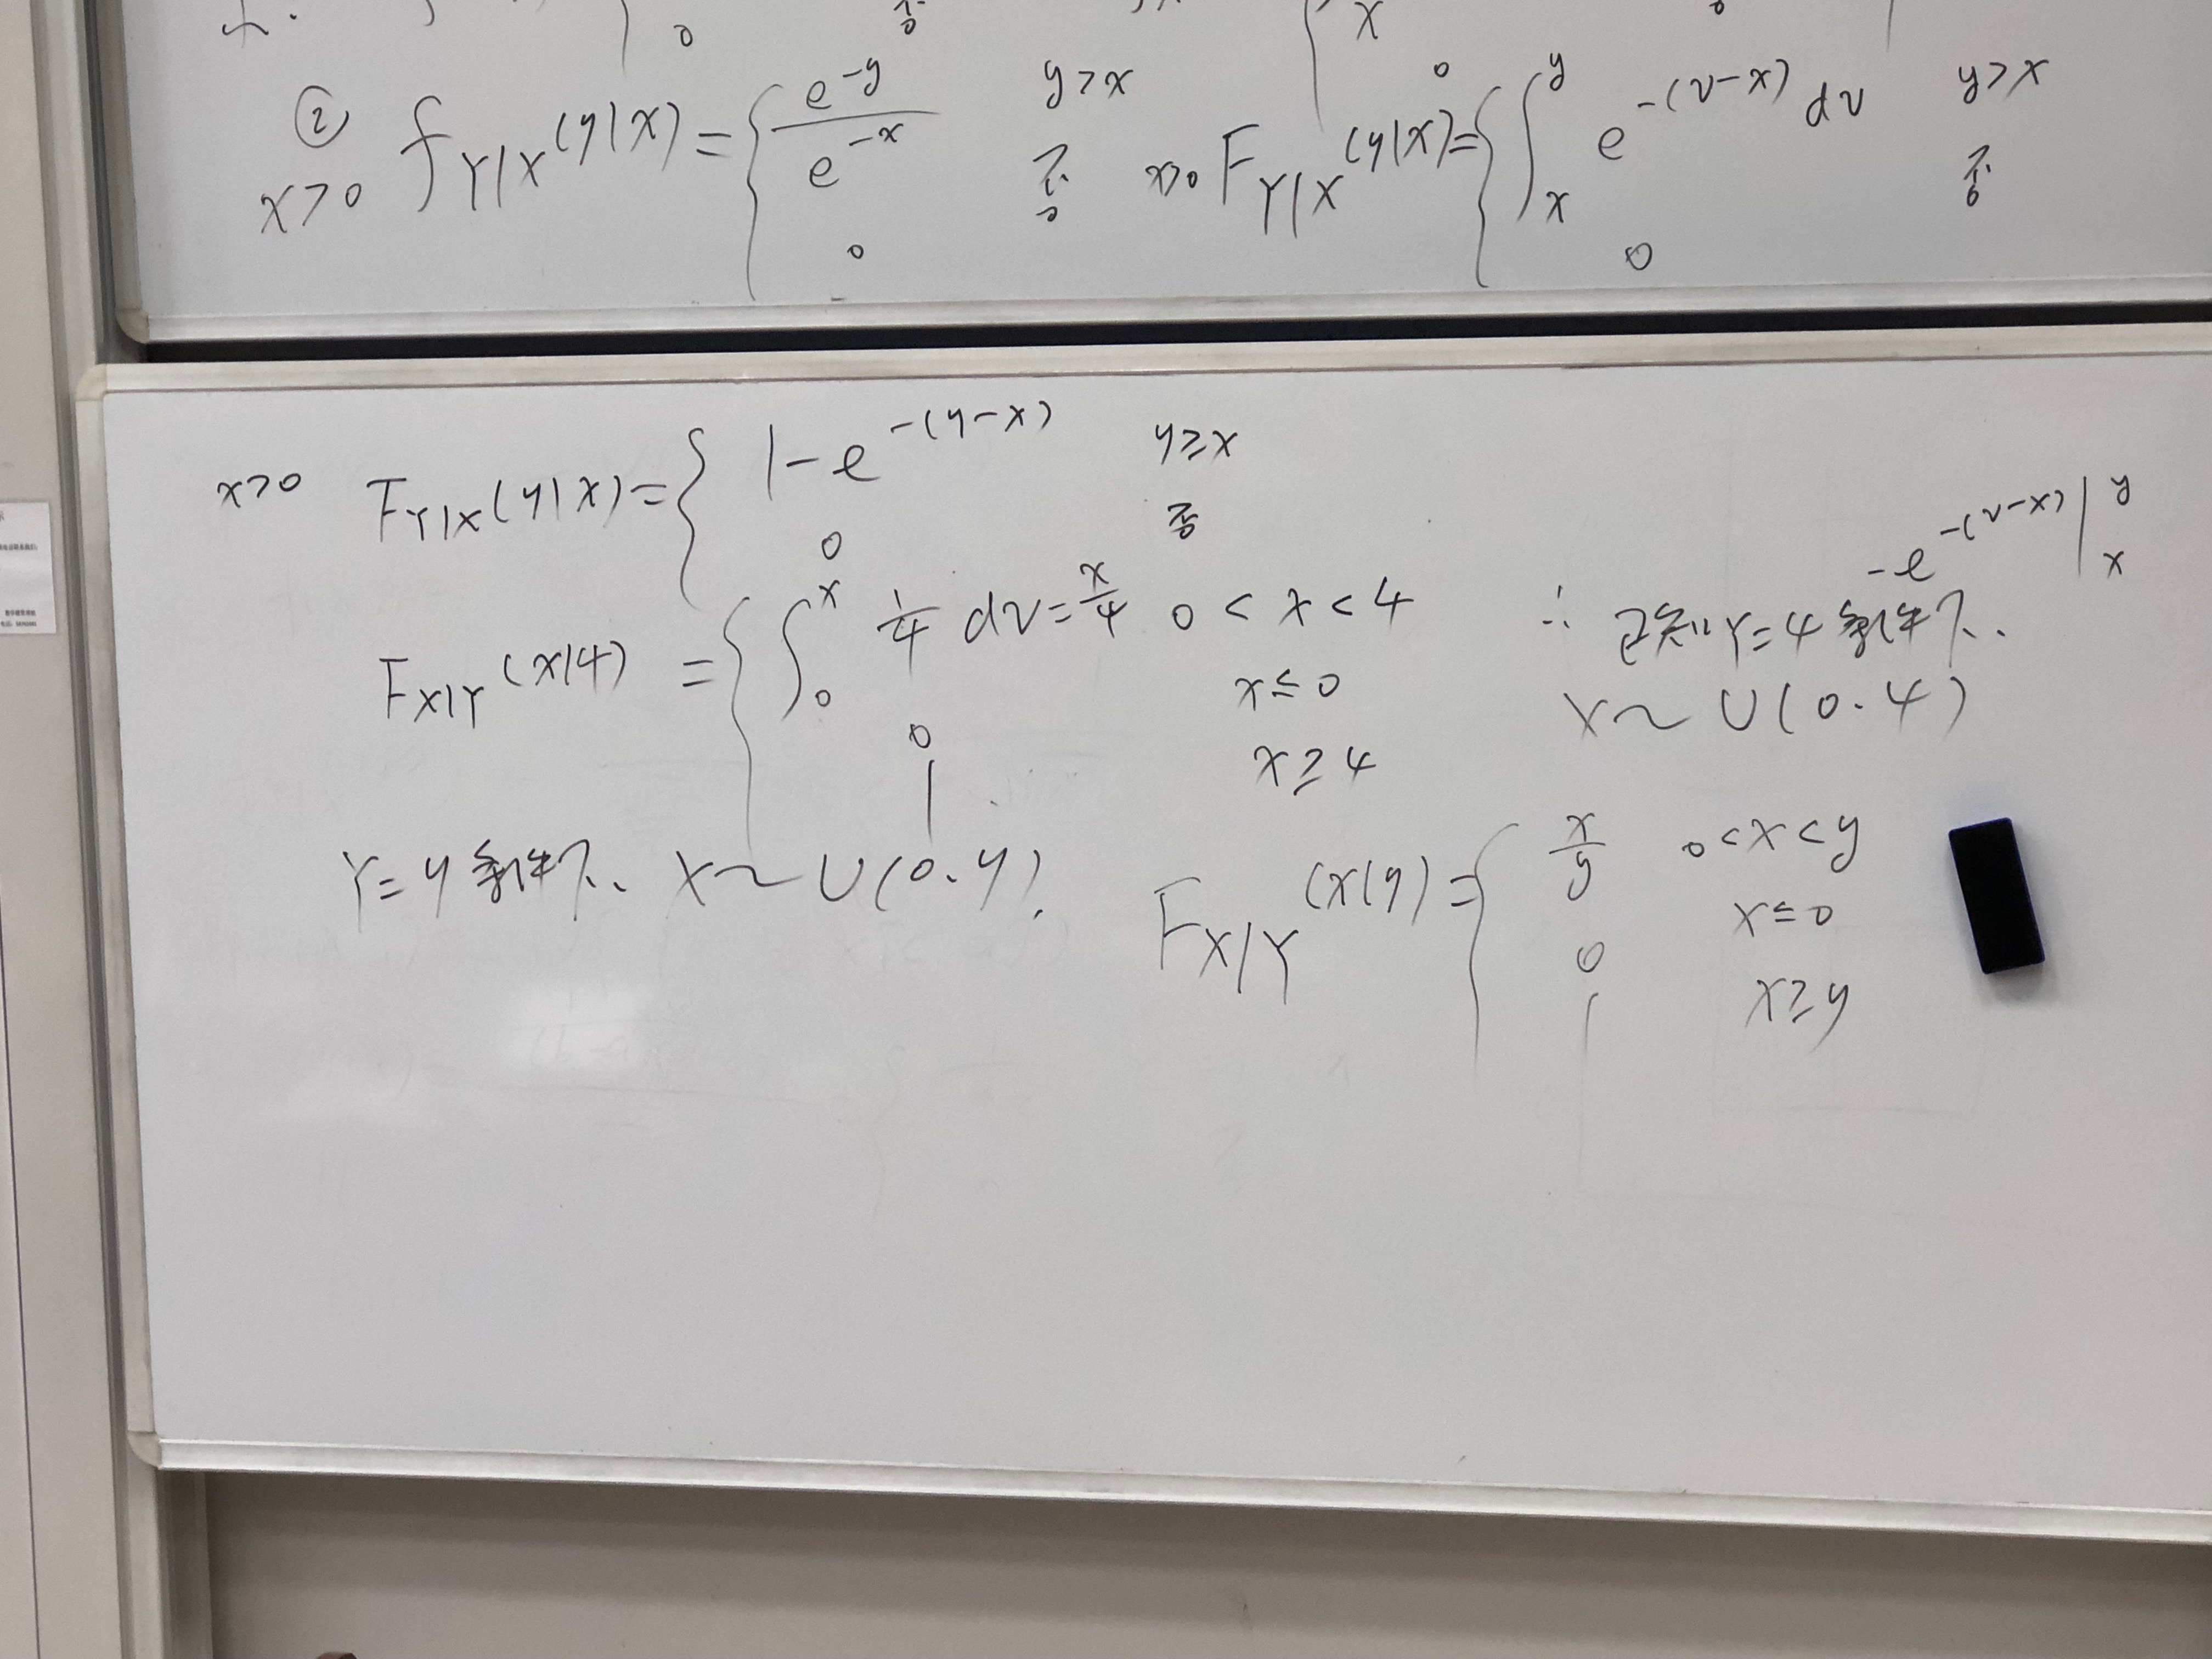 ② f_{Y|X}(y|x) = { e^{-y}/e^{-x} y>x
x>0 0 否
x>0 F_{Y|X}(y|x) = { ∫_x^y e^{-(v-x)} dv y>x
0 否
x>0 F_{Y|X}(y|x) = { 1-e^{-(y-x)} y≥x
0 否
-e^{-(v-x)} |_x^y
F_{X|Y}(x|4) = { ∫_0^x 1/4 dv = x/4 0<x<4
0 x≤0
1 x≥4
∴ 已知Y=4条件下.
X~U(0.4)
Y=y条件下、X~U(0.y).
F_{X|Y}(x|y) = { x/y 0<x<y
0 x≤0
1 x≥y